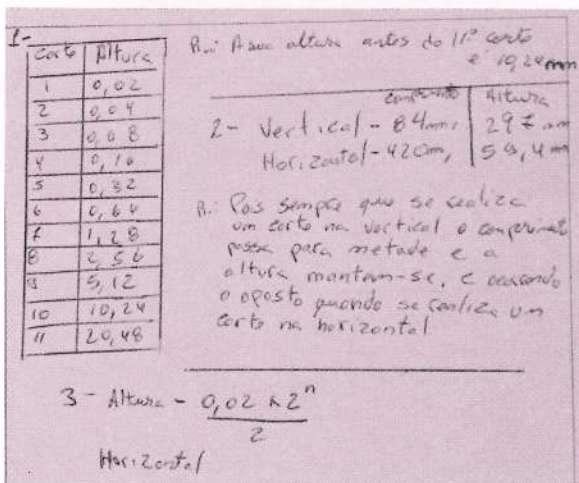 1-
Corte | Altura
1 | 0,02
2 | 0,04
3 | 0,08
4 | 0,16
5 | 0,32
6 | 0,64
7 | 1,28
8 | 2,56
9 | 5,12
10 | 10,24
11 | 20,48
R.: A sua altura antes do 11º corte
é 10,24mm
comprimento | Altura
2- Vertical - 84mm, | 297 mm
Horizontal - 420m, | 59,4 m
R.: Pois sempre que se realiza
um corte na vertical o
passa para metade e a
altura mantem-se, e
o oposto quando se realiza um
corte na horizontal
3- Altura - 0,02 x 2ⁿ
2
Horizontal